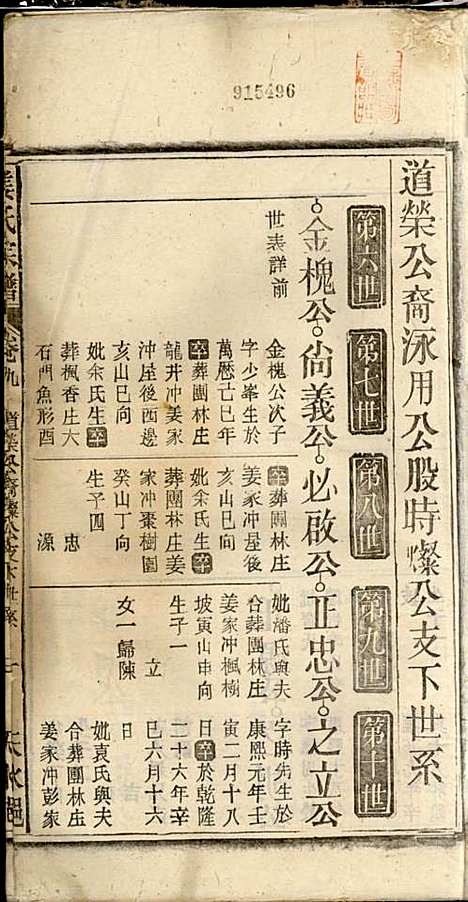 915496
道榮公裔泳用公股時燦公支下世系
第六世
第七世
第八世
第九世
第十世
金槐公
尙義公
必啟公
正忠公
之立公
世表詳前
金槐公次子
字少峯生於
萬曆丁巳年
卒葬團林庄
龍井冲姜家
冲屋後西邊
亥山巳向
妣余氏生卒
葬楓香庄大
石門魚形酉
卒葬團林庄
姜家冲屋後
亥山巳向
妣余氏生卒
葬團林庄姜
家冲棗樹園
癸山丁向
生子四
忠
源
妣潘氏與夫
合葬團林庄
姜家冲楓樹
坡寅山申向
生子一
立
女一歸陳
字時先生於
康熙元年壬
寅二月十八
日卒於乾隆
二十六年辛
巳六月十六
日
妣袁氏與夫
合葬團林庄
姜家冲彭家
姜氏宗譜
卷九